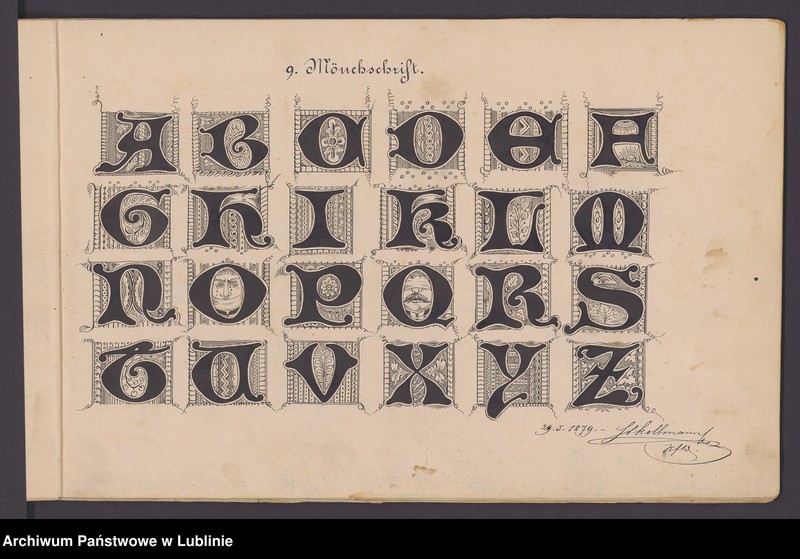 9. Mönchschrift.
A B C D E F
G H I K L M
N O P Q R S
T U V X Y Z
29.5.1879.
Archiwum Państwowe w Lublinie